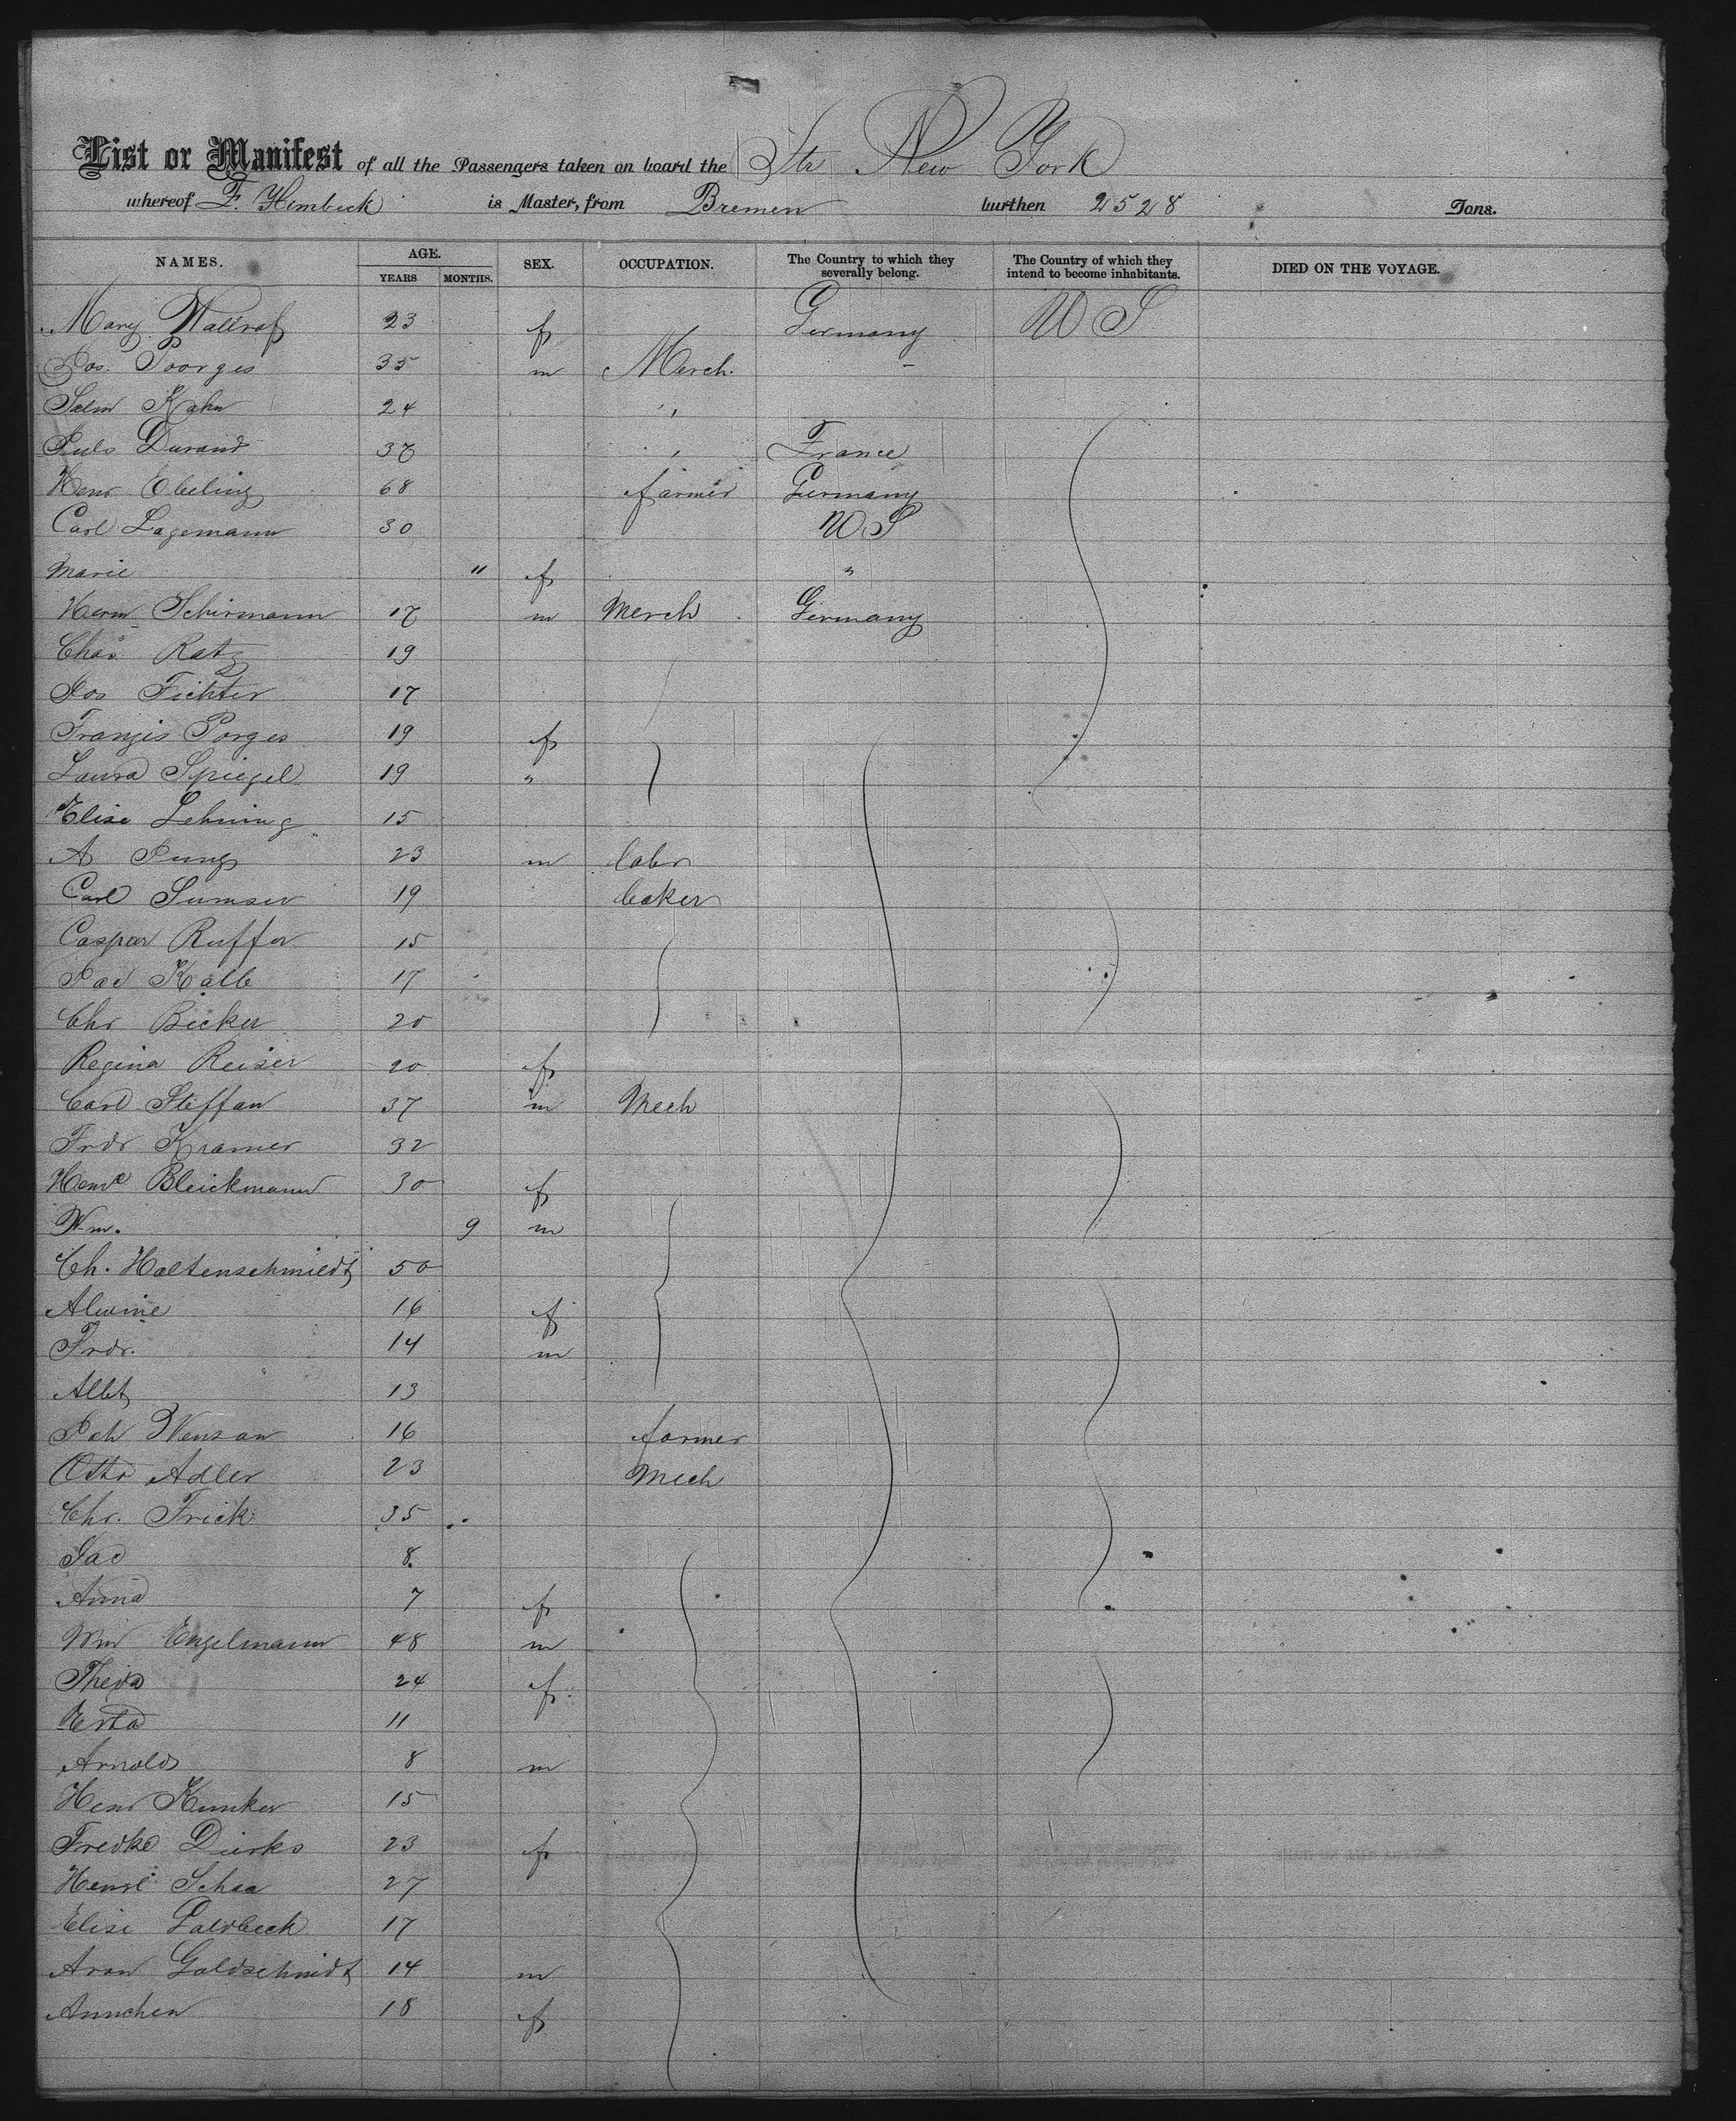 List or Manifest of all the Passengers taken on board the Str New York
whereof F. Himbeck is Master, from Bremen burthen 2528 Tons.
NAMES. AGE. YEARS MONTHS. SEX. OCCUPATION. The Country to which they severally belong. The Country of which they intend to become inhabitants. DIED ON THE VOYAGE.
Mary Wallraf 23 f Germany U S
Jos. Poorges 35 m Merch. -
Salm Kahn 24 "
Juls Durand 37 " France
Henr Ebeling 68 farmer Germany
Carl Lagemann 30 U S
Marie " f "
Herm Schirmann 17 m Merch Germany
Chas Ratz 19
Jos Fichter 17
Franzis Porges 19 f
Laura Spiegel 19 "
Elise Lehning 15
A Jung 23 m labr
Carl Sumser 19 baker
Caspar Ruffer 15
Jac Kalb 17
Chr Becker 20
Regina Reiser 20 f
Carl Steffan 37 m Mech
Frdr Kramer 32
Henre Bleickmann 30 f
Wm. 9 m
Ch. Holtenschmiedt 50
Alwine 16 f
Frdr. 14 m
Albt 13
Joh Wensan 16 farmer
Otto Adler 23 Mech
Chr. Frick 35
Jac 8
Anna 7 f
Wm Engelmann 48 m
Thera 24 f
Erta 11
Arnold 8 m
Henr Kunker 15
Fredke Dirks 23 f
Henre Schaa 27
Elise Paldbeck 17
Aron Goldschmidt 14 m
Annchen 18 f